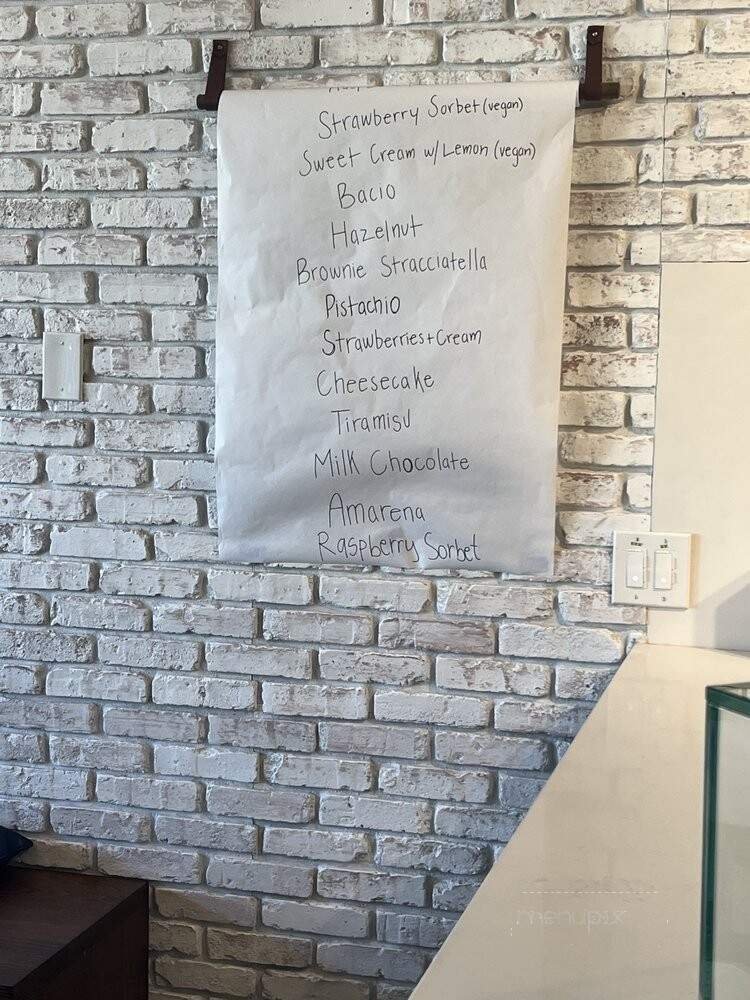 Strawberry Sorbet (vegan)
Sweet Cream w/ Lemon (vegan)
Bacio
Hazelnut
Brownie Stracciatella
Pistachio
Strawberries + Cream
Cheesecake
Tiramisu
Milk Chocolate
Amarena
Raspberry Sorbet
menupix